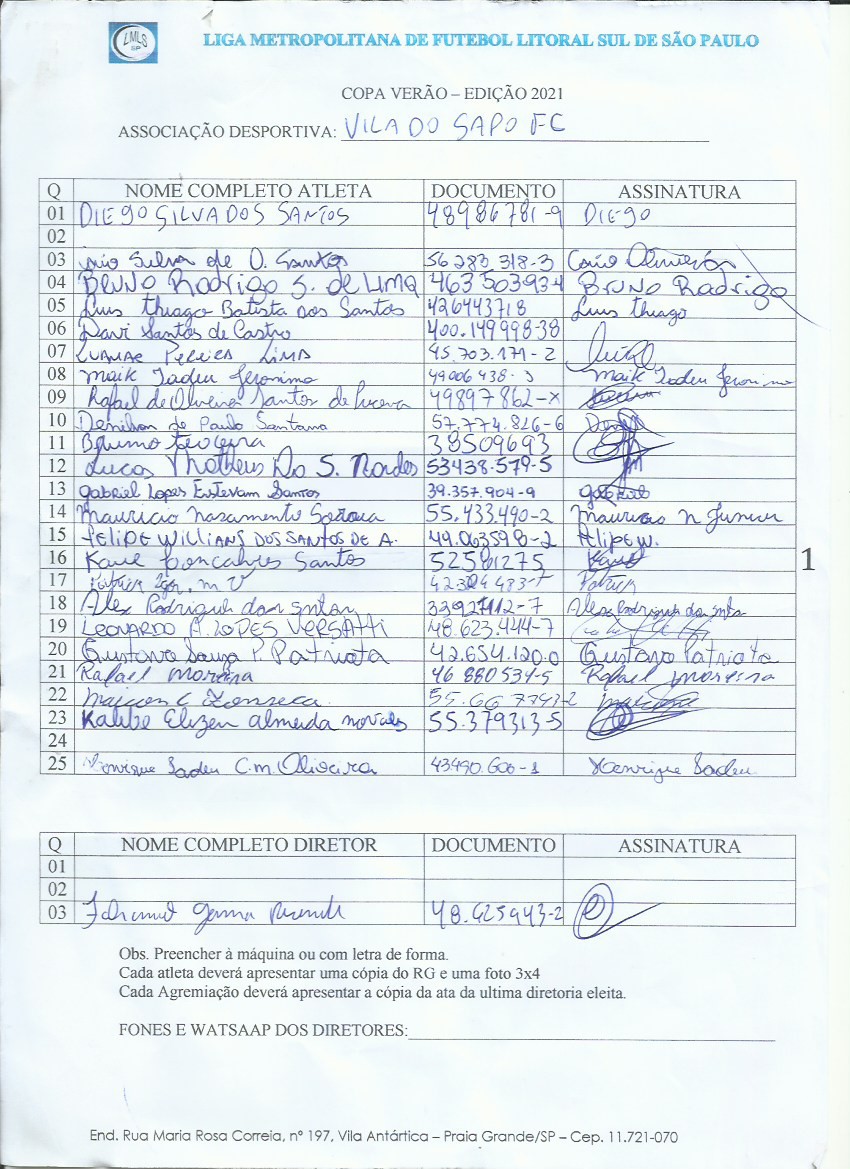 LMLS SP
LIGA METROPOLITANA DE FUTEBOL LITORAL SUL DE SÃO PAULO
COPA VERÃO – EDIÇÃO 2021
ASSOCIAÇÃO DESPORTIVA: VILA DO SAPO FC
Q NOME COMPLETO ATLETA DOCUMENTO ASSINATURA
01 DIEGO SILVA DOS SANTOS 48986781-9 DIEGO
02
03 Silva de O. Santos 56 283 318-3 Caio
04 BRUNO RODRIGO S. de LIMA 463503934 BRUNO RODRIGO
05 Luis Thiago Batista dos Santos 426443718 Luis thiago
06 Davi Santos de Castro 400.149998-38
07 LUANAE PEREIRA LIMA 45.703.171-2
08 Maik Tadeu Jeronimo 49006438-3 Maik Tadeu Jeronimo
09 Rafael de Oliveira Santos de Lucena 49897862-X
10 Denilson de Paulo Santana 57.774.826-6
11 Bruno Teixeira 38509693
12 Lucas Matheus Do S. 53438-579-5
13 gabriel Lopes Estevam Santos 39.357.904-9 gabriel
14 Mauricio Nascimento 55.433.490-2 Mauricio N Junior
15 FELIPE WILLIANS DOS SANTOS DE A. 49.063598-2 Felipe W.
16 Kaue Goncalves Santos 52581275 Kaue
17 Patrick
18 Alex Rodrigues dos Santos Alex Rodrigues dos
19 LEONARDO A. LOPES VERSATTI 48.623.444-7
20 Gustavo Souza P. Patriota 42.654.120-0 Gustavo Patriota
21 Rafael Moreira 46 880534-5 Rafael Moreira
22 Maicon C Fonseca
23 Kalibe Elizeu almeida novais 55.379313-5
24
25 Henrique Tadeu C.M. Oliveira 43490.606-1 Henrique Tadeu
1
Q NOME COMPLETO DIRETOR DOCUMENTO ASSINATURA
01
02
03 48.625943-2
Obs. Preencher à máquina ou com letra de forma.
Cada atleta deverá apresentar uma cópia do RG e uma foto 3x4
Cada Agremiação deverá apresentar a cópia da ata da ultima diretoria eleita.
FONES E WATSAAP DOS DIRETORES:
End. Rua Maria Rosa Correia, nº 197, Vila Antártica – Praia Grande/SP – Cep. 11.721-070